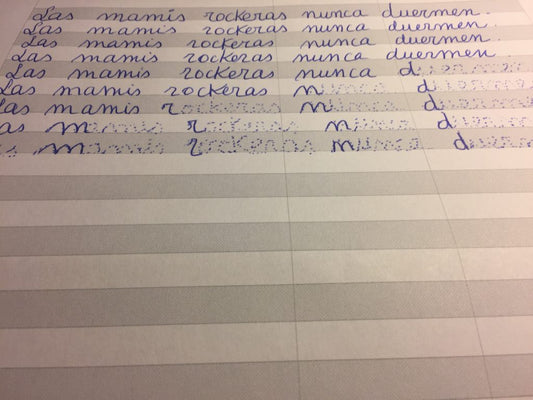 Las mamis rockeras nunca duermen.
Las mamis rockeras nunca duermen.
Las mamis rockeras nunca duermen.
Las mamis rockeras nunca duermen
Las mamis rockeras nunca duermen
Las mamis rockeras nunca duermen
Las mamis rockeras nunca duermen
as mamis rockeras nunca duermen
s mamis rockeras nunca duermen